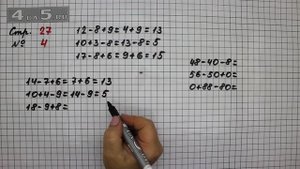 4а5.ru
Стр. 27
№ 4
12-8+9=4+9=13
10+3-8=13-8=5
17-8+6=9+6=15
14-7+6=7+6=13
10+4-9=14-9=5
18-9+8=
48-40-8=
56-50+0=
0+88-80=